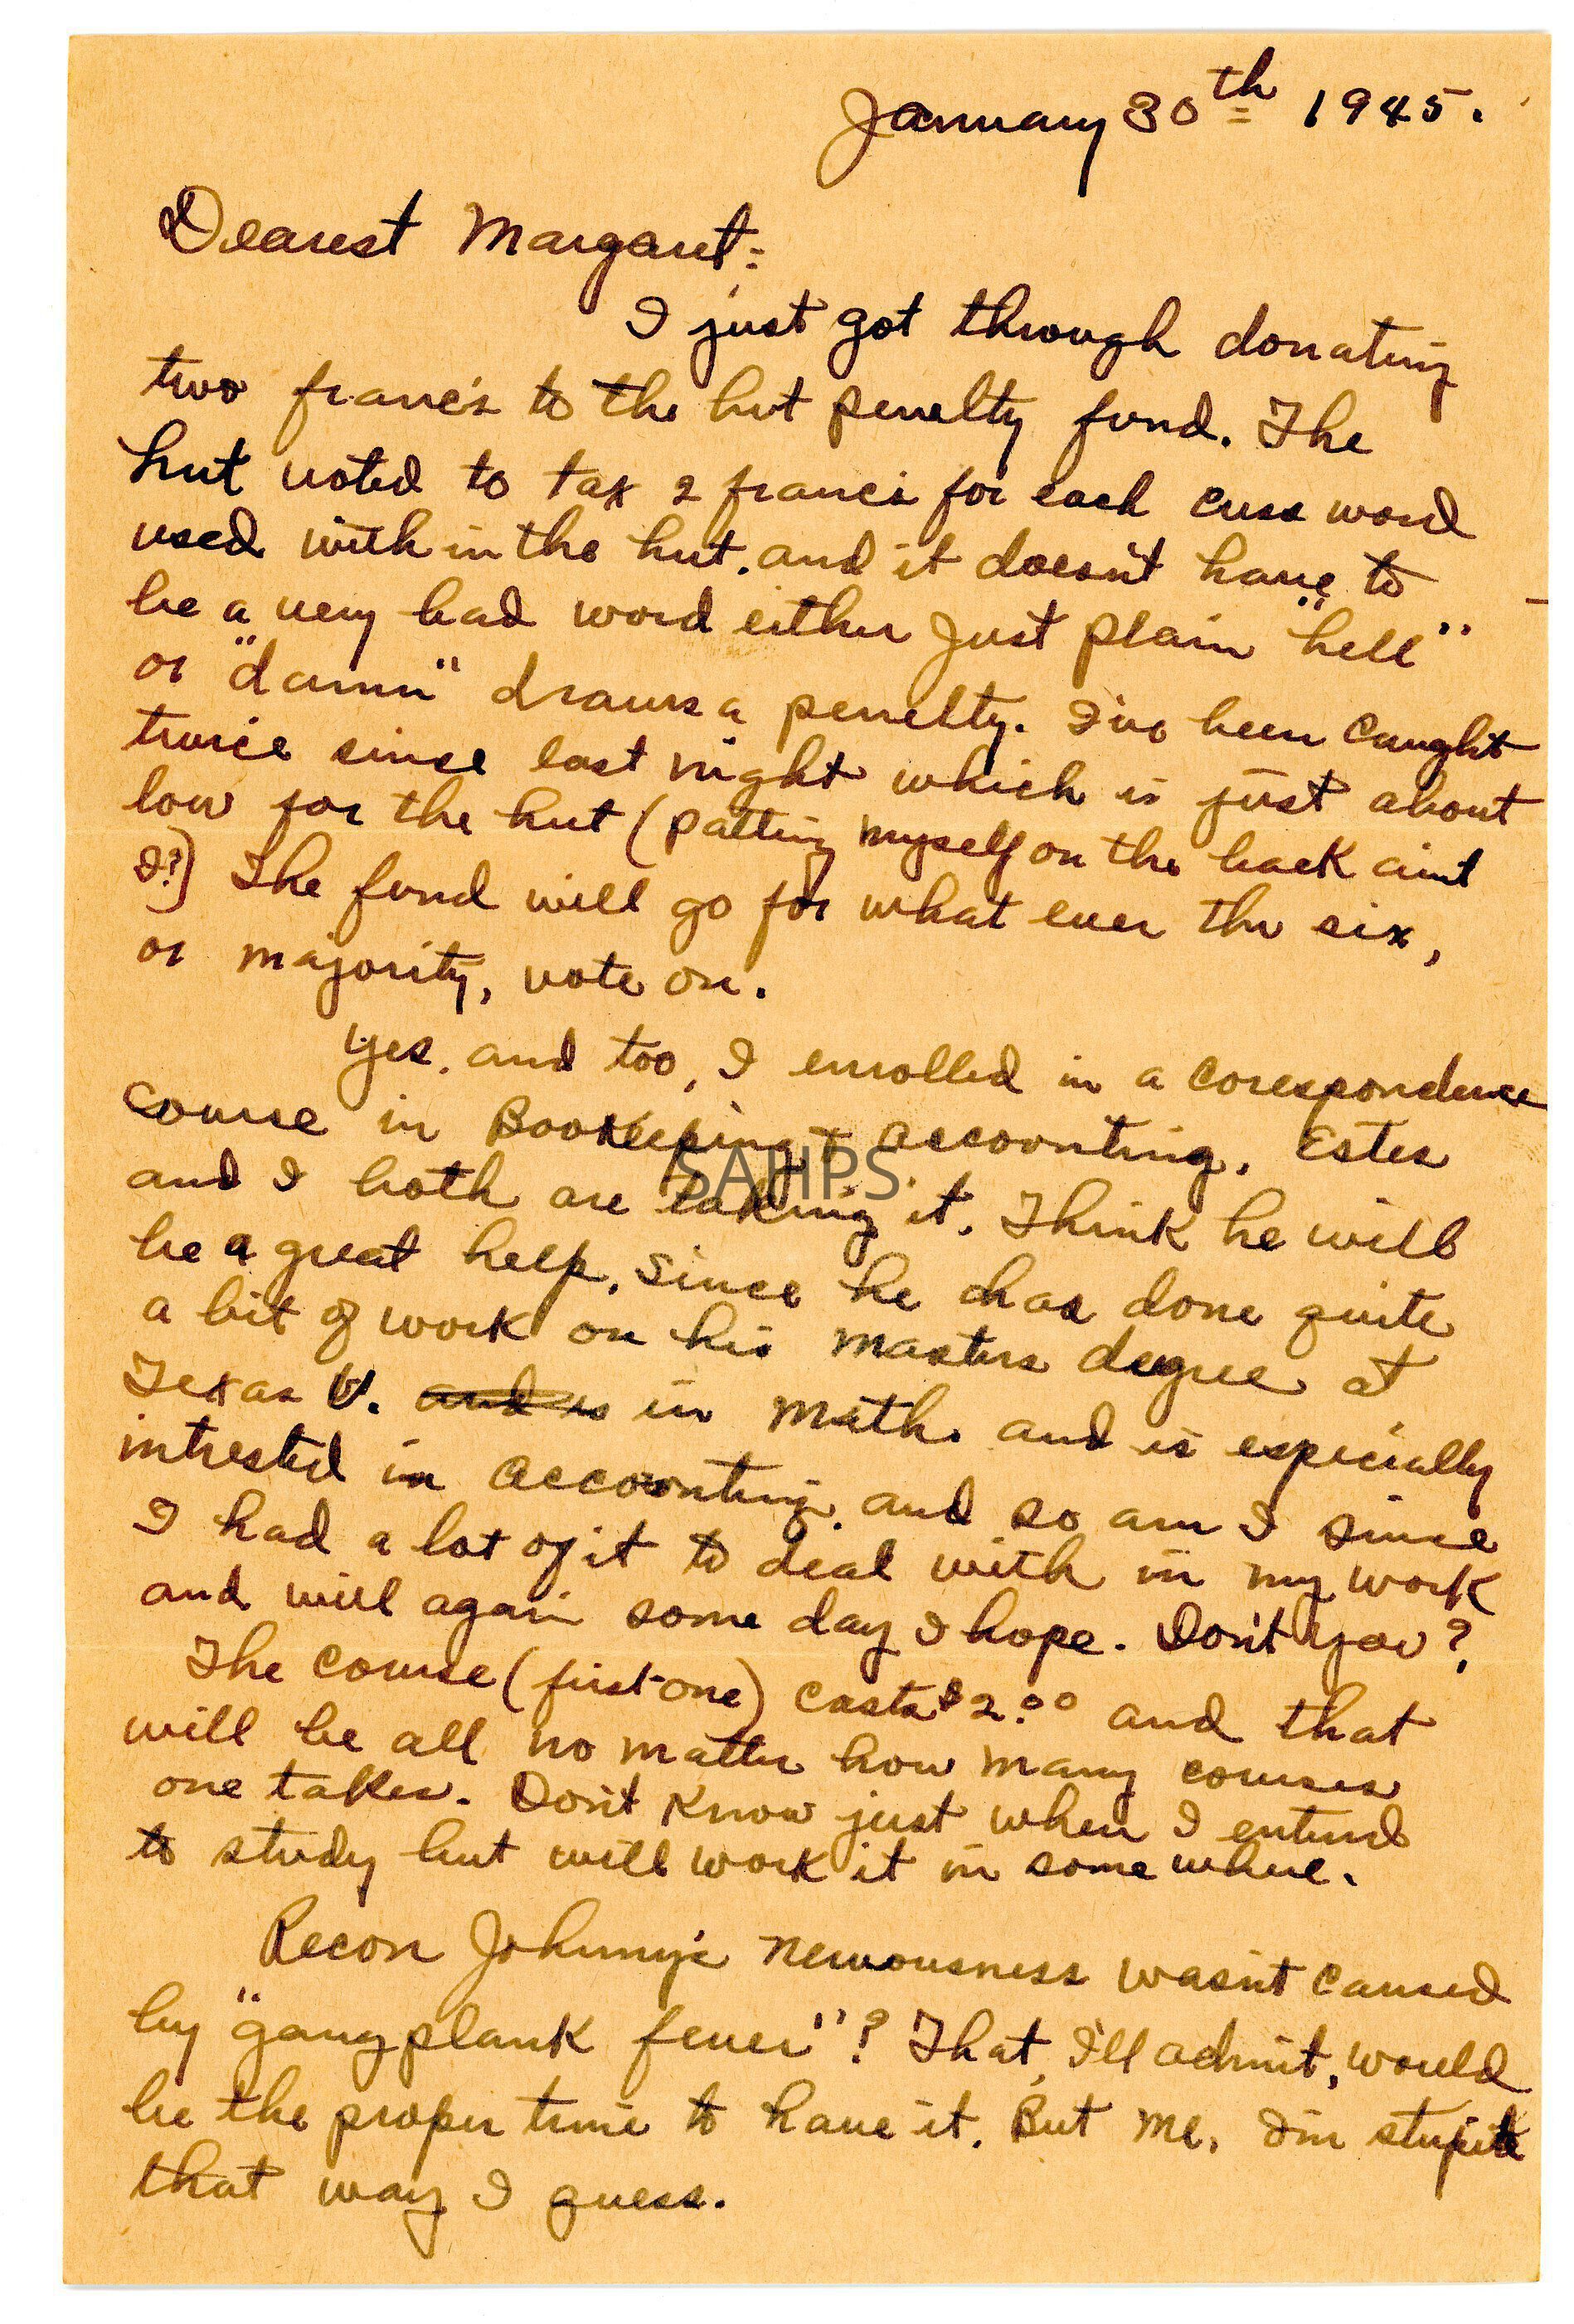 January 30th 1945.
Dearest Margaret:
I just got through donating
two franc's to the hut penelty fund. The
hut voted to tax 2 francs for each cuss word
used with in the hut. and it doesn't have to
be a very bad word either just plain "hell"
or "damn" draws a penelty. I've been caught
twice since last night which is just about
low for the hut (patting myself on the back aint
I?) The fund will go for what ever the six,
or majority, vote on.
Yes, and too, I enrolled in a corespondence
course in Bookeeping + accounting. Estes
and I both are taking it. Think he will
SAHPS
be a great help, since he has done quite
a bit of work on his masters degree at
Texas U. and is in math. and is especially
intrested in accounting. and so am I since
I had a lot of it to deal with in my work
and will again some day I hope. Don't you?
The course (first one) costs $2.00 and that
will be all no matter how many courses
one takes. Don't know just when I entend
to study but will work it in some where.
Recon Johnny's nervousness wasn't caused
by "gang plank fever"? That, I'll admit, would
be the proper time to have it. But me, I'm
that way I guess.